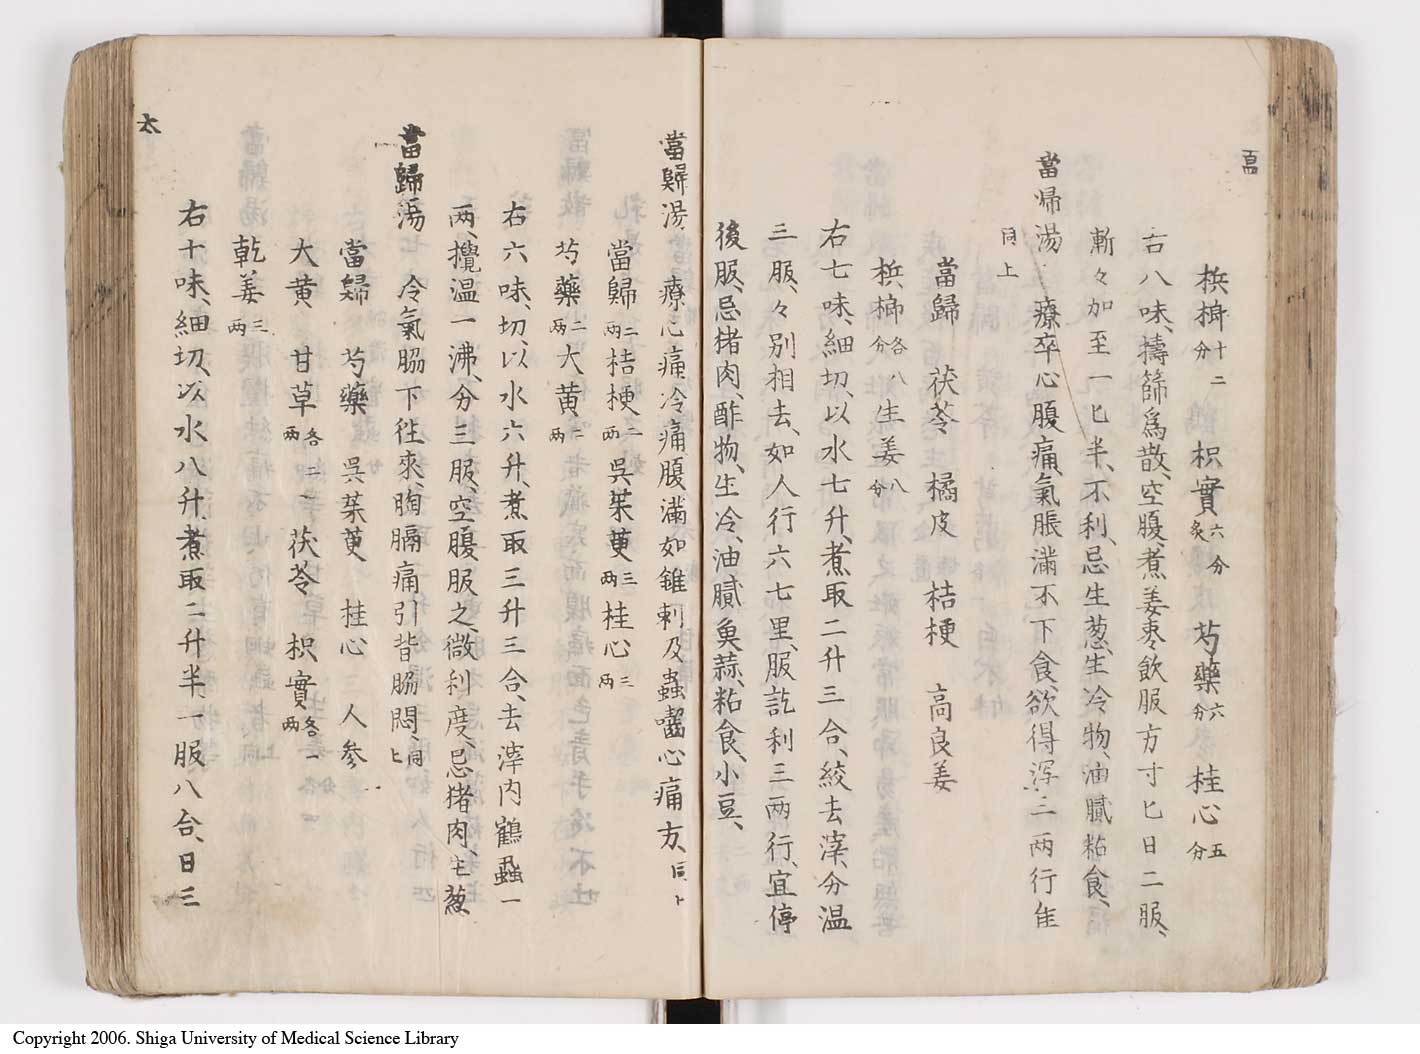 檳榔十二分 枳實六分炙 芍藥六分 桂心五分
右八味、擣篩爲散、空腹煮姜枣飲服方寸匕日二服、
漸々加至一匕半、不利、忌生葱、生冷物、油膩粘食、
當帰湯 療卒心腹痛、氣脹滿不下食、欲得瀉三兩行佳
同上
當歸 茯苓 橘皮 桔梗 高良姜
檳榔各八分 生姜八分
右七味、細切、以水七升、煮取二升三合、絞去滓、分温
三服、々別相去、如人行六七里、服訖利三两行、宜停
後服、忌猪肉、酢物、生冷、油膩魚蒜、粘食、小豆、
當歸湯 療心痛、冷痛腹滿如錐刺及蟲嚙心痛方、同上
當歸二两 桔梗二两 呉茱萸三两 桂心三两
芍藥二两 大黄二两
右六味、切、以水六升、煮取三升三合、去滓内鶴蝨一
两、攪温一沸、分三服、空腹服之、微利度、忌猪肉、生葱
當歸湯 冷氣脇下往來、胸膈痛引背脇悶、同上
當歸 芍藥 呉茱萸 桂心 人参
大黄 甘草各二两 茯苓 枳實各一两
乾姜三两
右十味、細切、以水八升、煮取二升半一服八合、日三
太